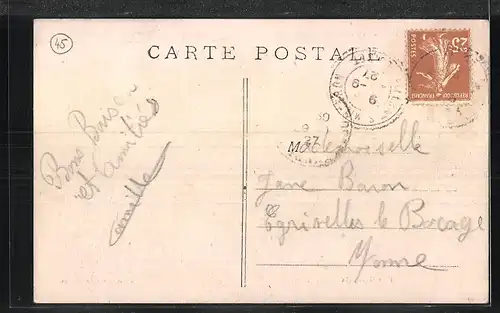 45
CARTE POSTALE
25c
POSTES
REPUBLIQUE FRANÇAISE
Bons Baisers
et amitiés
Camille
Mademoiselle
Jane Baron
Egriselles le Bocage
Yonne